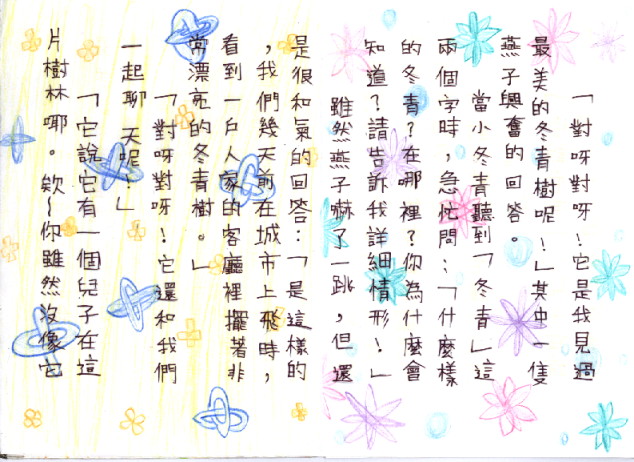 「對呀對呀！它是我見過
最美的冬青樹呢！」其中一隻
燕子興奮的回答。
當小冬青聽到「冬青」這
兩個字時，急忙問：「什麼樣
的冬青？在哪裡？你為什麼會
知道？請告訴我詳細情形！」
雖然燕子嚇了一跳，但還
是很和氣的回答：「是這樣的
，我們幾天前在城市上飛時，
看到一戶人家的客廳裡擺著非
常漂亮的冬青樹。」
「對呀對呀！它還和我們
一起聊天呢！」
「它說它有一個兒子在這
片樹林耶。欸～你雖然沒像它